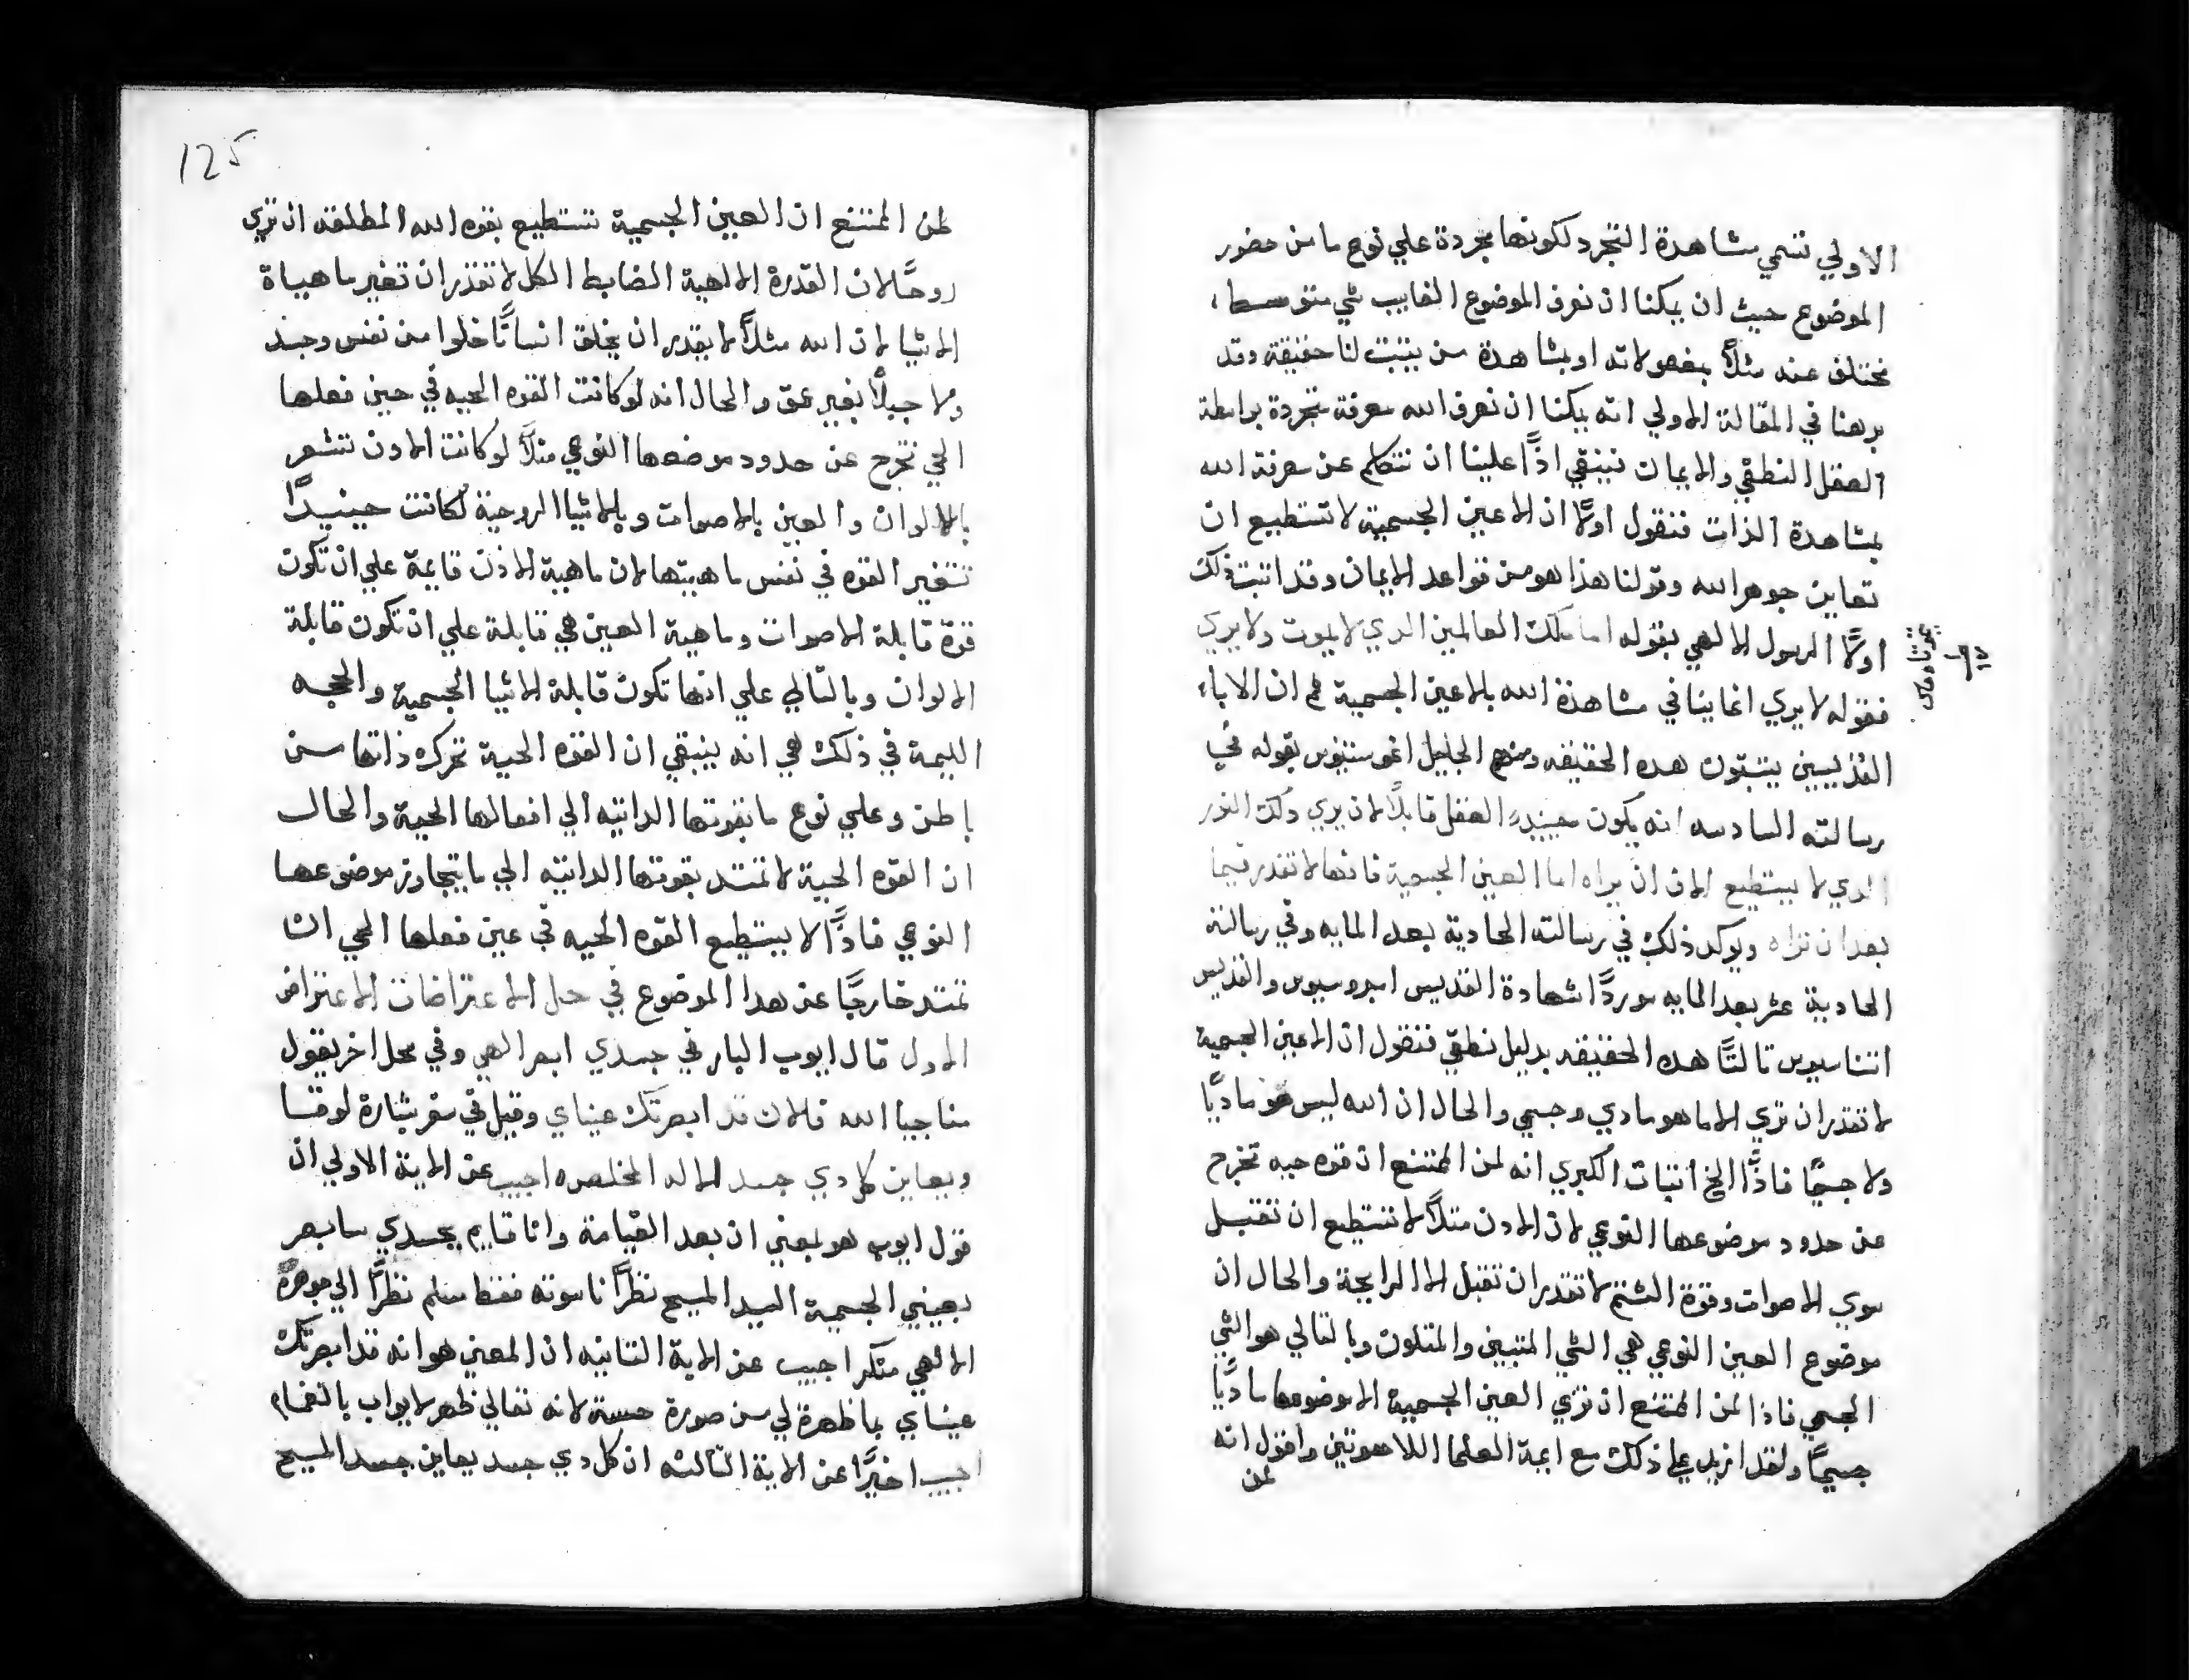 الاولي تسمي مشاهدة التجرد لكونها مجردة علي نوع ما من حضور
الموضوع حيث ان يمكنا ان نعرف الموضوع الغايب شي متوسط،
مختلف عنه مثلاً بمفعولاته او بمشاهدة من يثبت لنا حقيقته وقد
برهنا في المقالة الاولي انه يمكنا ان نعرف الله معرفة متجردة بواسطة
العقل النطقي والايمان فينبغي اذاً علينا ان نتكلم عن معرفة الله
بمشاهدة الذات فنقول اولاً ان الاعين الجسمية لا تستطيع ان
تعاين جوهر الله وقولنا هذا هو من قواعد الايمان وقد اثبت ذلك
اولاً الرسول الالهي بقوله اما ملك العالمين الدي لا يموت ولا يري
فقوله لا يري انما ينافي مشاهدة الله بالاعين الجسمية ثم ان الاباء
القديسين يثبتون هده الحقيقه ومنهم الجليل اغوستينوس بقوله في
رسالته السادسه انه يكون حينيدٍ العقل قابلاً لان يري دلك النور
الدي لا يستطيع الان ان يراه اما العين الجسمية فانها لا تقدر فيما
بعد ان تراه ويوكد ذلك في رسالته الحادية بعد المايه وفي رسالته
الحادية عشر بعد المايه مورداً شهادة القديس امبروسيوس والقديس
اتناسيوس تالتاً هده الحقيقه بدليل نطقي فنقول ان الاعين الجسمية
لا تقدر ان تري الا ما هو مادي وجسمي والحال ان الله ليس هو مادياً
ولا جسمياً فاذاً الخ اثبات الكبري انه لمن الممتنع ان قوه حيه تخرج
عن حدود موضوعها النوعي لان الادن مثلاً لا تستطيع ان تقبل
سوي الاصوات وقوة الشم لا تقدر ان تقبل الا الرايحة والحال ان
موضوع العين النوعي هي الشي المتبين والمتلون وبالتالي هو الشي
الجسمي فاذا لمن الممتنع ان تري العين الجسمية الا موضوعها مادياً
جسمياً ولقد ازيد علي ذلك مع ايمة العلما اللاهوتين واقول انه
لمن
لمن الممتنع ان العين الجسمية تستطيع بقوه الله المطلقه ان تري
روحاً لان القدرة الالهية الضابط الكل لا تقدر ان تغير ماهياة
الاشيا لان الله مثلاً لا يقدر ان يخلق انساناً خلوا من نفس وجسد
ولا جبلاً بغير عمق والحال انه لو كانت القوه الحيه في حين فعلها
الحي تخرج عن حدود موضعها النوعي مثلاً لو كانت الادن تشعر
بالالوان والعين بالاصوات وبالاشيا الروحية لكانت حينيداً
تتغير القوه في نفس ماهيتها لان ماهية الاذن قايمة علي ان تكون
قوة قابلة الاصوات وماهية العين هي قابلة علي ان تكون قابلة
الالوان وبالتالي علي انها تكون قابلة الاشيا الجسمية والحجه
اللمية في ذلك هي انه ينبغي ان القوه الحية تحرك ذاتها من
باطن وعلي نوع ما بقوتها الداتيه الي افعالها الحية والحال
ان القوه الحية لا تمتد بقوتها الداتيه الي ما يتجاوز موضوعها
النوعي فاذاً لا يستطيع القوه الحيه في عين فعلها الحي ان
تمتد خارجاً عن هدا الموضوع في حل الاعتراضات الاعتراض
الاول قال ايوب البار في جسدي ابصر الهي وفي محل اخر يقول
مناجيا الله فالان قد ابصرتك عيناي وقيل في سفر بشارة لوقا
ويعاين كل دي جسد الاله المخلص اجيب عن الاية الاولي ان
قول ايوب هو بمعني ان بعد القيامة وانا قايم بجسدي سابصر
بعيني الجسمية السيد المسيح نظراً ناسوته فقط نظراً الي جوهره
الالهي اجيب عن الاية التانيه ان المعني هو انه قد ابصرتك
عيناي بما ظهرة لي من صورة حسية لانه تعالي ظهر لايوب بالغمام
اجيب اخيراً عن الاية التالثه ان كل دي جسد يعاين جسد المسيح
125